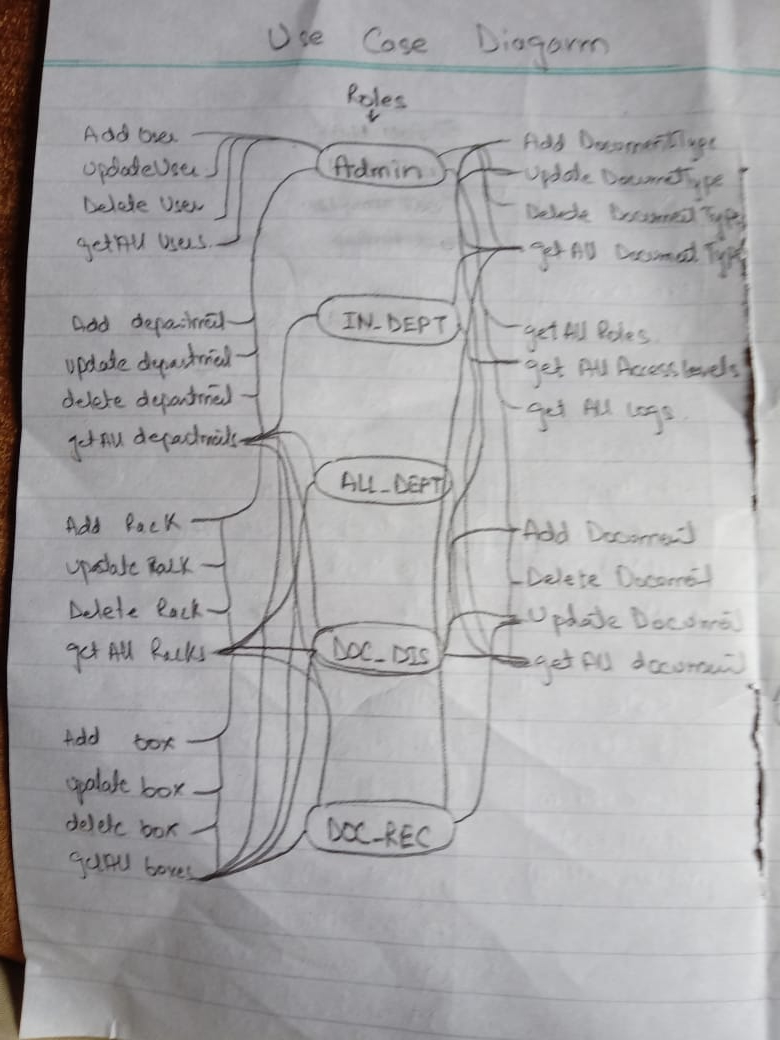 Use Case Diagarm
Roles
Add User
UpdateUser
Delete User
getAll Users
Add department
update department
delete department
getAll departments
Add Rack
update Rack
Delete Rack
get All Racks
Add box
update box
delete box
getAll boxes
Admin
IN_DEPT
ALL_DEPT
DOC_DIS
DOC_REC
Add DocumentType
Update DocumetType
Delete Document Type
get All Document Type
get All Roles
get All Access levels
get All Logs
Add Document
Delete Document
Update Document
get All document